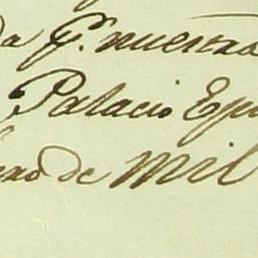 da p.r nuestro
Palacio Epi
ero de mil